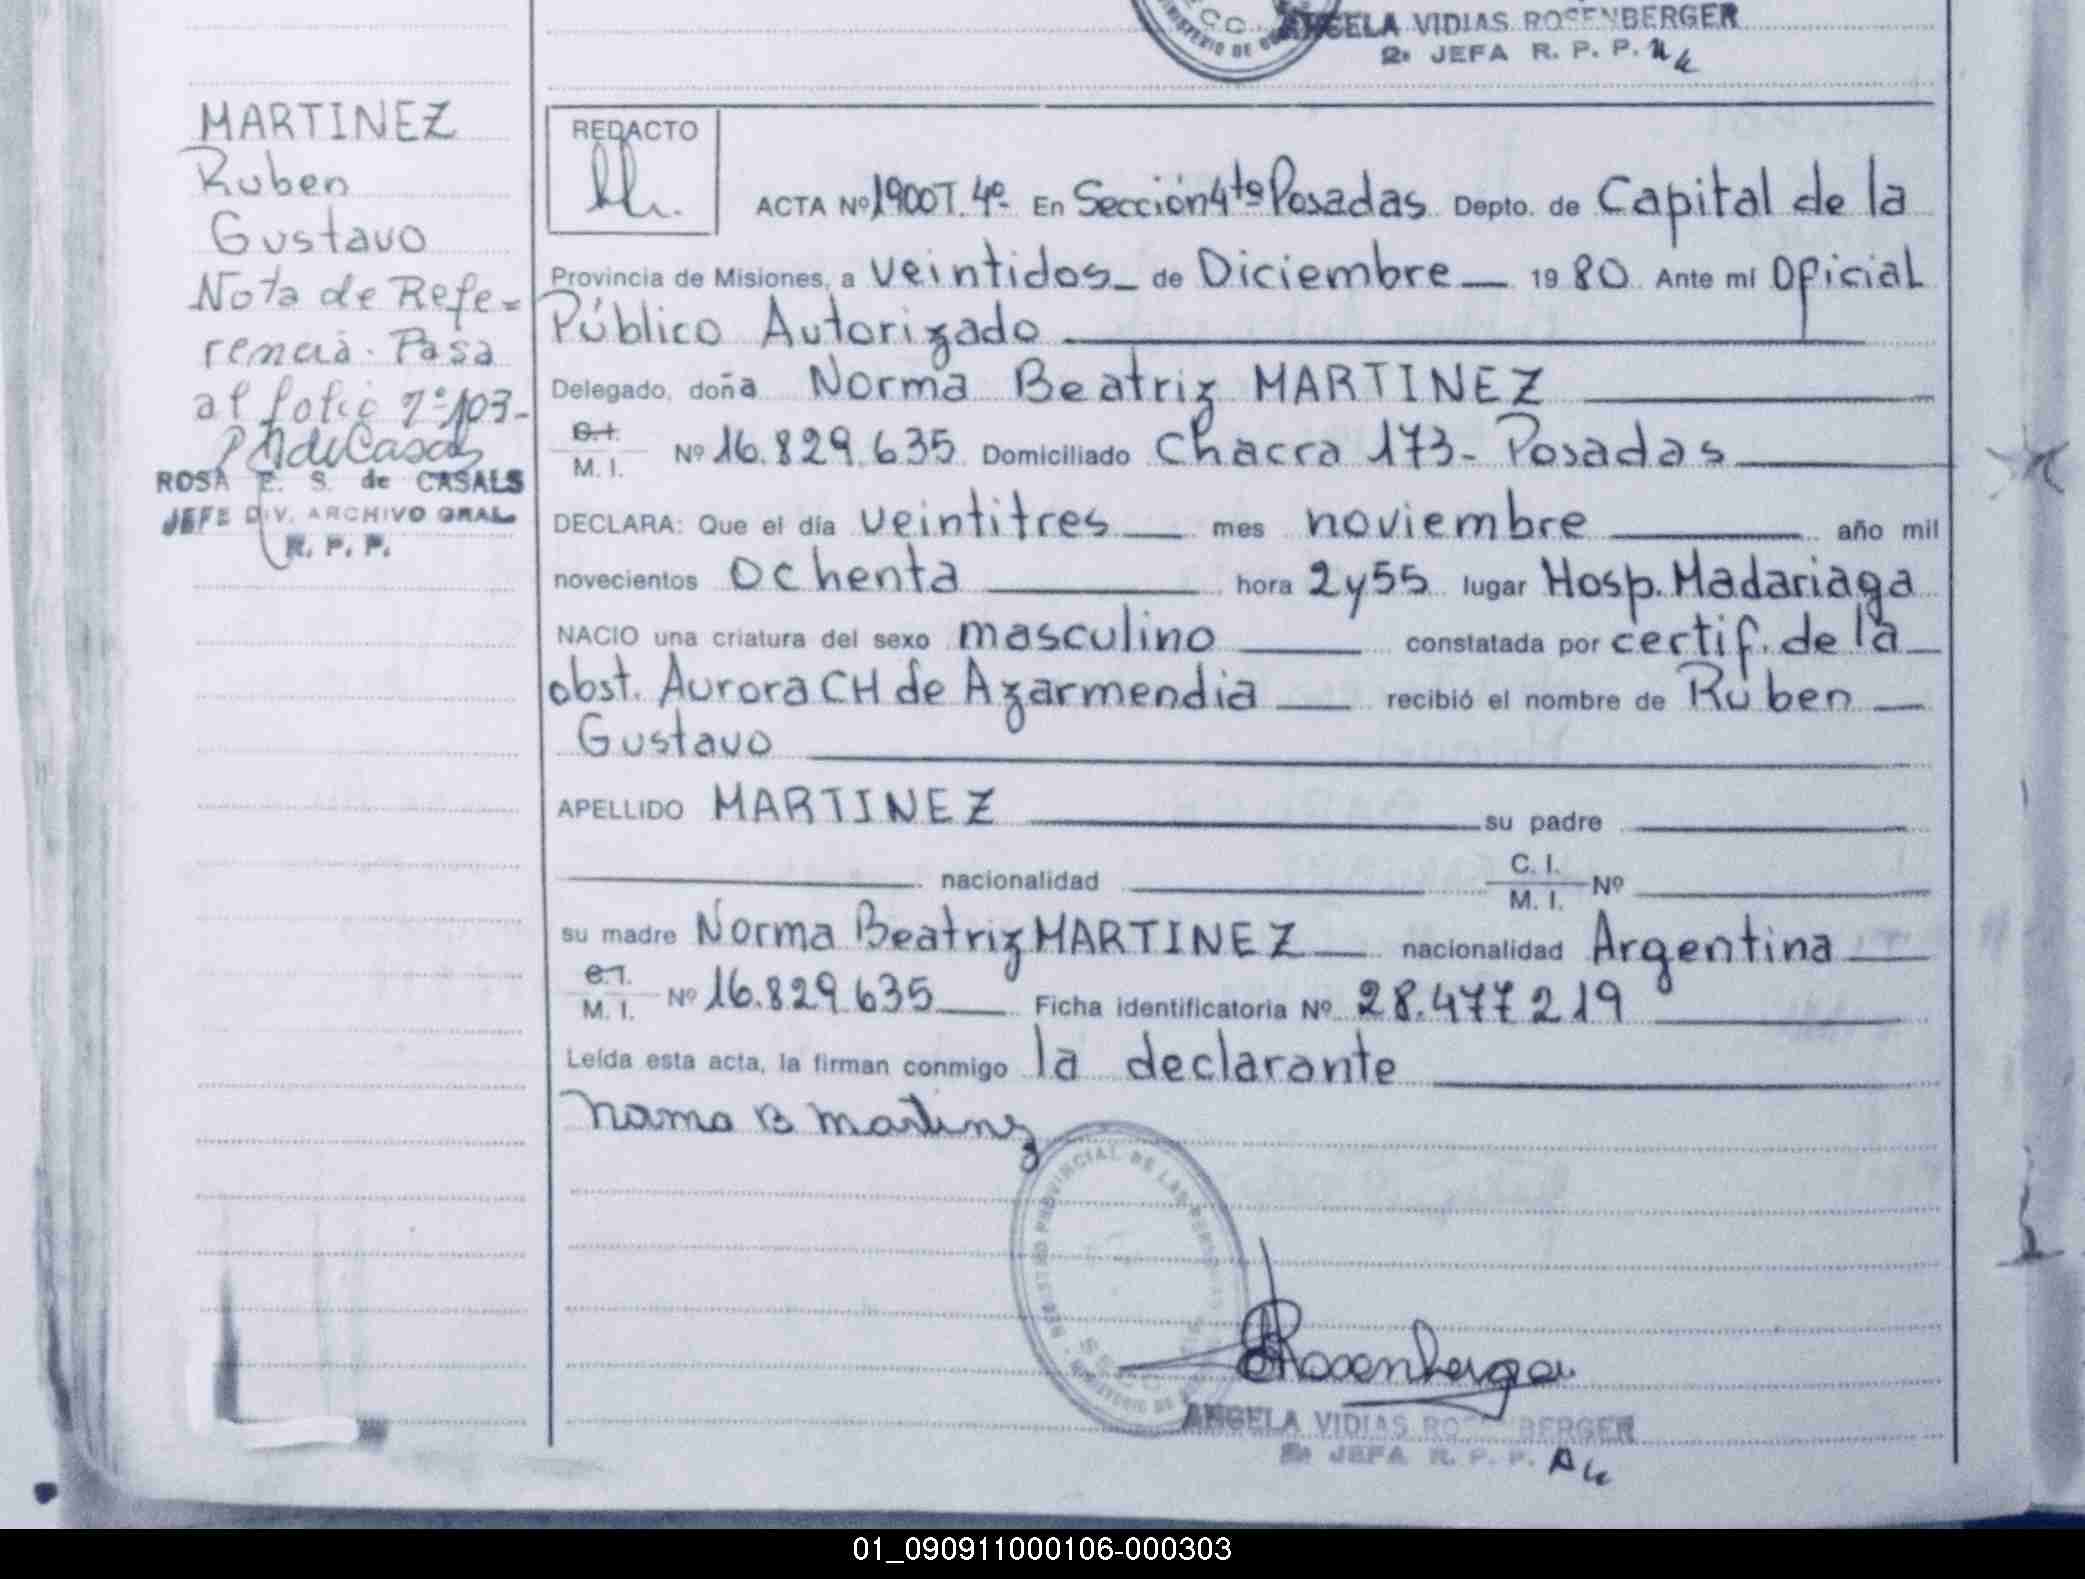 ANGELA VIDIAS ROSENBERGER
2ª JEFA R. P. P.
MINISTERIO DE
MARTINEZ
Ruben
Gustavo
Nota de Refe=
rencia. Pasa
al folio nº 103-
ROSA E. S. de CASALS
JEFE DIV. ARCHIVO GRAL
R. P. P.
REDACTO
ACTA Nº 1900 T. 4º En Sección 4ta Posadas Depto. de Capital de la
Provincia de Misiones, a veintidos de Diciembre 1980. Ante mí Oficial
Público Autorizado
Delegado, doña Norma Beatriz MARTINEZ
C.I.
M. I. Nº 16.829.635 Domiciliado Chacra 173- Posadas
DECLARA: Que el día veintitres mes noviembre año mil
novecientos ochenta hora 2 y 55 lugar Hosp. Madariaga
NACIO una criatura del sexo masculino constatada por certif. de la
obst. Aurora CH de Azarmendia recibió el nombre de Ruben
Gustavo
APELLIDO MARTINEZ su padre
nacionalidad C. I.
M. I. Nº
su madre Norma Beatriz MARTINEZ nacionalidad Argentina
C.I.
M. I. Nº 16.829.635 Ficha identificatoria Nº 28.477.219
Leída esta acta, la firman conmigo la declarante
Norma B Martinez
REGISTRO PROVINCIAL DE LAS PERSONAS
Rosenberger
ANGELA VIDIAS ROSENBERGER
2ª JEFA R. P. P.
01_090911000106-000303